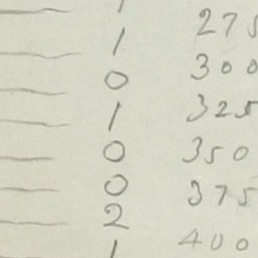 1 275
1 300
0 325
1 350
0 375
0 400
2
1